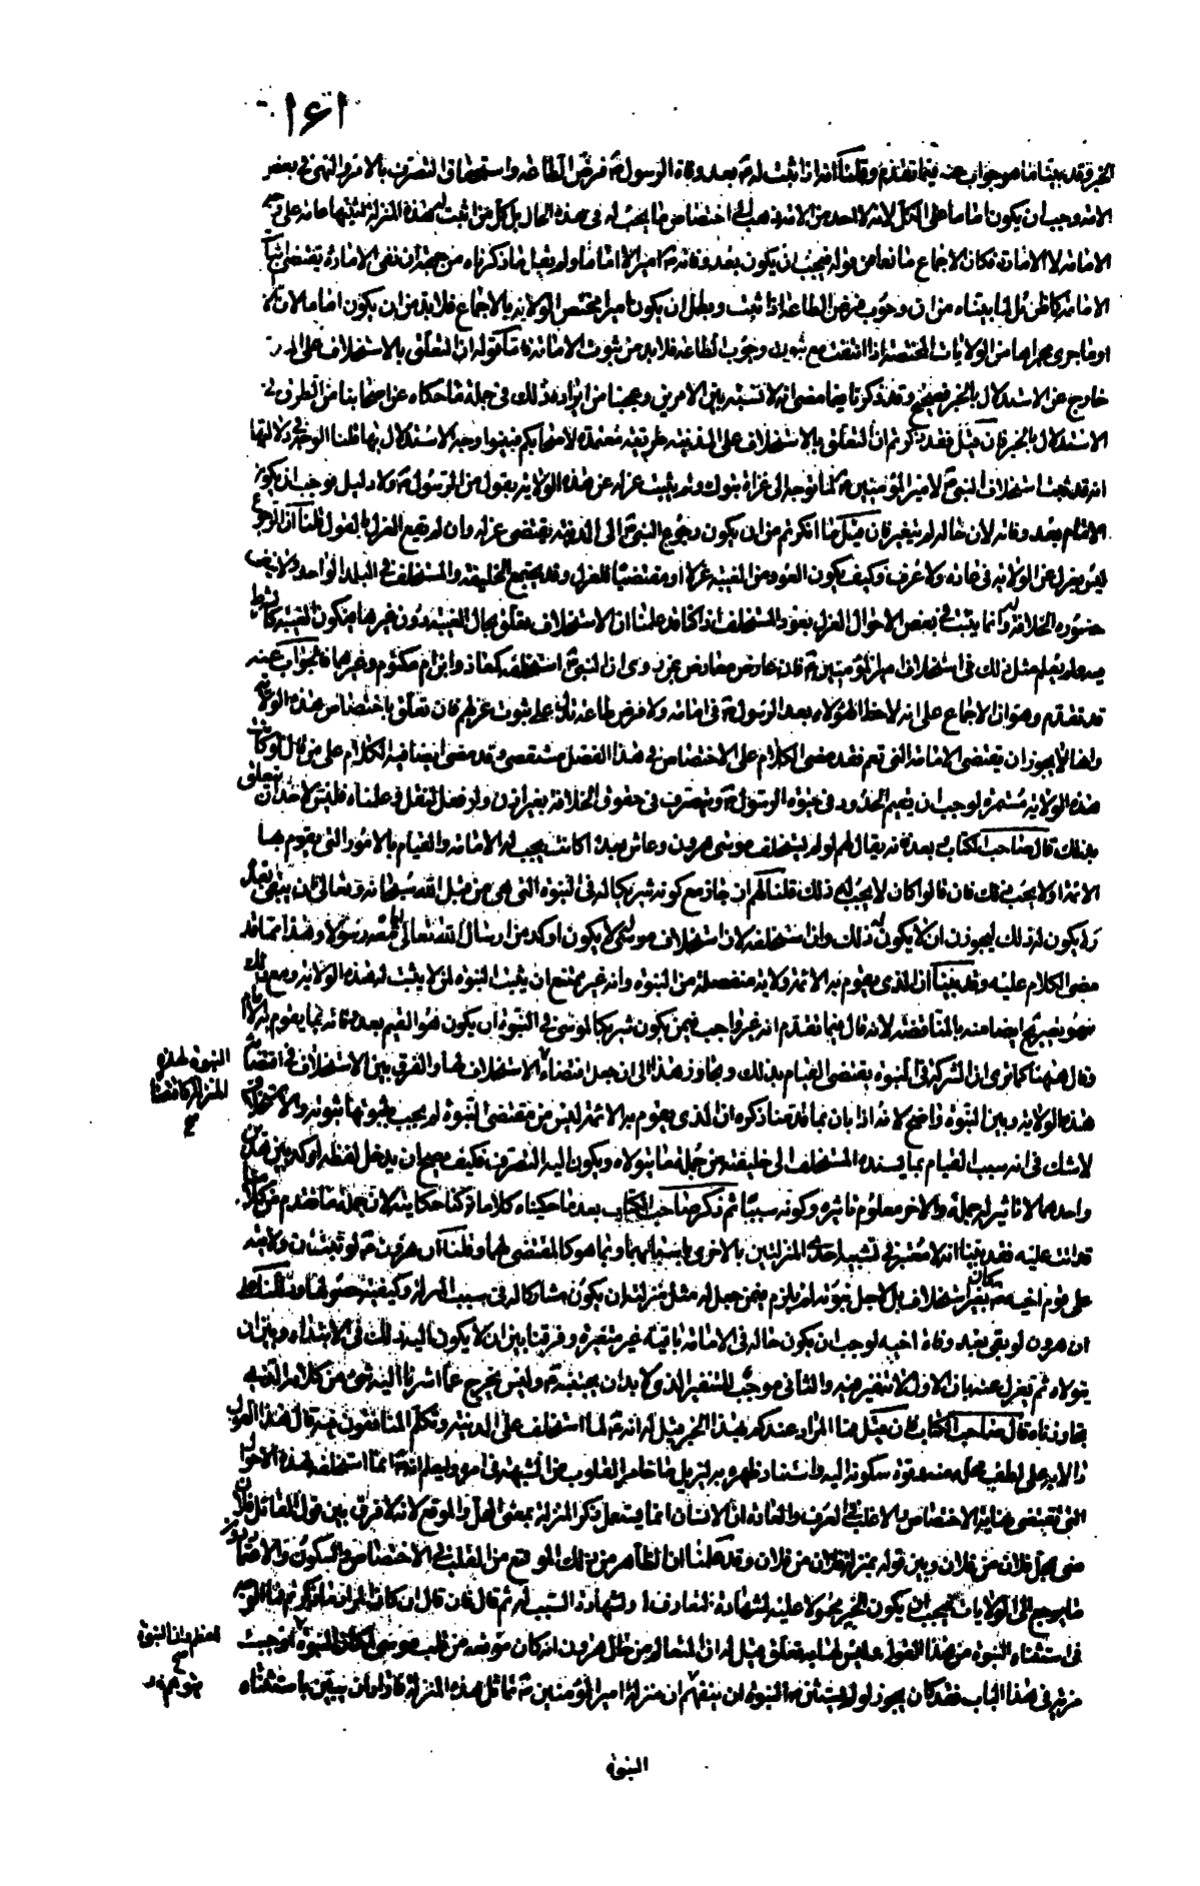 ١٦١
الخبر وقد بينا ما هو جواب عنه فيما تقدم وقلنا انه اذا ثبت له ع بعد وفاة الرسول ص فرض الطاعة واستحقاق التصرف بالامر والنهى فى بعض
الامة وجب ان يكون اماما على الكل لانه لا احد من الامة ذهب الى اختصاص ما يجب له فى هذه الحال بل كل من اثبت له هذه المنزلة اثبتها عامة على
الامامة لا الامارة فكان الاجماع مانعا من قوله فيجب ان يكون بعد وفاته ص اميرا لا اماما ولم يقل ما ذكرناه من جهة ان نفى الامارة يقتضى اثبات
الامامة كما ظن بل لما بيناه من ان وجوب فرض الطاعة اذا ثبت وبطل ان يكون اميرا مختص الولاية بالاجماع فلا بد من ان يكون اماما لان
او ما جرى مجراها من الولايات المختصة اذا انتفت مع ثبوت وجوب الطاعة فلا بد من ثبوت الامامة فاما قوله ان التعلق بالاستخلاف على المدينة
خارج عن الاستدلال بالخبر فصحيح وقد ذكرنا فيما مضى انه لا نسبة بين الامرين وعجبنا من ايراده ذلك فى جملة ما حكاه عن اصحابنا من الطرق فى
الاستدلال بالخبر فان قيل فقد ذكرتم ان التعلق بالاستخلاف على المدينة طريقة معتمدة لاصحابكم فبينوا وجه الاستدلال بها قلنا الوجه فى دلالتها
انه قد ثبت استخلاف النبى ص لامير المؤمنين ع لما توجه الى غزاة تبوك ولم يثبت عزله عن هذه الولاية بقول من الرسول ص ولا دليل فوجب ان يكون
الامام بعد وفاته لان حاله لم يتغير فان قيل ما انكرتم من ان يكون رجوع النبى ص الى المدينة يقتضى عزله وان لم يقع العزل بالقول قلنا ان الرجوع
ليس بعزل عن الولاية فى عادة ولا عرف وكيف يكون العود من الغيبة عزلا او مقتضيا للعزل وقد يجتمع الخليفة والمستخلف فى البلد الواحد ولا ينفى
حضوره الخلافة له وانما يثبت فى بعض الاحوال العزل بعود المستخلف اذا كنا قد علمنا ان الاستخلاف تعلق بحال الغيبة دون غيرها فيكون الغيبة كالشرط
فيه ولم يعلم مثل ذلك فى استخلاف امير المؤمنين ع فان عارض معارض بمن روى ان النبى ص استخلفه كمعاذ وابن ام مكتوم وغيرهما فالجواب عنه
قد تقدم وهو ان الاجماع على انه لا حظ لهؤلاء بعد الرسول ص فى امامة ولا فرض طاعة يدل على ثبوت عزلهم فان تعلق باختصاص هذه الولاية
وانها لا يجوز ان يقتضى الامامة التى تعم فقد مضى الكلام على الاختصاص فى هذا الفصل مستقصى وقد مضى ايضا فيه الكلام على من قال لو كانت
هذه الولاية مستمرة لوجب ان يقيم الحدود فى حيوة الرسول ص ويتصرف فى حقوق الخلافة بغير اذن ولو فعل لنقل فى علمناه فليس لاحد ان يتعلق
بذلك قال صاحب الكتاب بعده ثم يقال لهم لو لم يستخلف موسى هرون وعاش بعده اكانت يجب له الامامة والقيام بالامور التى يقوم بها
الائمة او لا يجب ذلك فان قالوا كان لا يجب له ذلك قلنا لهم ان جاز مع كونه شريكا له فى النبوة التى هى من قبل الله سبحانه وتعالى ان يبقى بعده
ولا يكون له ذلك ليجوزن ان لا يكون له ذلك وان استخلفه لان استخلاف موسى له لا يكون اوكد من ارسال الله تعالى اياه معه رسولا وهذا مما قد
مضى الكلام عليه وقد بينا ان الذى يقوم به الائمة ولاية منفصلة من النبوة وانه غير ممتنع ان يثبت النبوة لمن لا يثبت له هذه الولاية ومع ذلك
فهو تصريح ايضا منه بالمناقضة لانه قال فيما تقدم انه غير واجب فيمن يكون شريكا لموسى فى النبوة ان يكون هو القيم بعده وفاته بما يقوم به الامام
وقال ههنا كما ترى ان الشركة فى النبوة يقتضى القيام بذلك وتجاوز هذا الى ان جعل اقتضاء الاستخلاف لها والفرق بين الاستخلاف فى اقتضاء
النبوة لهذه المنزلة كاقتضاء صح
هذه الولاية وبين النبوة واضح لانه اذا بان بما قدمنا ذكره ان الذى يقوم به الائمة ليس من مقتضى النبوة لم يجب بثبوتها ثبوته والاستخلاف
لا شك فى انه سبب القيام بما يسنده المستخلف الى خليفته من جملة ما يتولاه ويكون اليه التصرف فكيف يصح ان يدخل لفظة اوكد بين هذين
واحدهما لا تاثير له جملة والاخر معلوم تاثيره وكونه سببا ثم ذكر صاحب الكتاب بعد ما حكيناه كلاما تركنا حكايته لان جملة ما تقدم من كلامنا
قد اتت عليه فقد بينا انه لا معتبر فى تشبيه احدى المنزلتين بالاخرى باسبابهما وبما هو كالمقتضى لهما وقلنا ان هرون ع لو ثبت ان ولايته
على قوم اخيه ع كانت بغير استخلاف بل لاجل نبوته لم يلزم فيمن جعل له مثل منزلته ان يكون مشاركا له فى سبب المنزلة وكيفية حصولها وذلك
ان هرون لو بقى بعد وفاة اخيه لوجب ان يكون حاله فى الامامة باقية غير متغيرة وفرقنا بين ان لا يكون اليه ذلك فى الابتداء وبين ان
يتولاه ثم يعزل عنه بان الاول لا تنفير فيه والثانى موجب للتنفير الذى لا بد ان يجنبه ع وليس يخرج عما اشرنا اليه شىء من كلامه الذى
تجاوزناه قال صاحب الكتاب فان قيل فما المراد عندكم بهذا الخبر قيل له انه ص لما استخلف على المدينة وتكلم المنافقون فيه قال هذا القول
دالا به على لطف محله منه وقوة سكونه اليه واستناد ظهره به ليزيل ما خامر القلوب من الشبهة فى امره وليعلم انه ع انما استخلفه لهذه الاحوال
التى تقتضى نهاية الاختصاص والاغلب فى العرف والعادة ان الانسان انما يستعمل ذكر المنزلة بمعنى المحل والموقع لانه لا فرق بين قول القائل فلان
منى بمحل فلان من فلان وبين قوله بمنزلة فلان من فلان وقد علمنا ان الظاهر من ذلك الموقع من القلب فى الاختصاص والسكون والاعتماد دون
ما يرجع الى الولايات فيجب ان يكون الخبر محمولا عليه لشهادة التعارف او لشهادة السبب له ثم قال فان قال ان كان المراد ما ذكرتم فما الوجه
فى استثناء النبوة من هذا القول وليس لها به تعلق قيل له ان المتعالم من حال هرون انه كان موقعه من قلب موسى لمكان النبوة اوجبت
مزية فى هذا الباب فقد كان يجوز لو لم يستثن ص النبوة ان يتفهم ان منزلة امير المؤمنين ع تماثل هذه المنزلة فاراد ان يبين باستثناء
النبوة